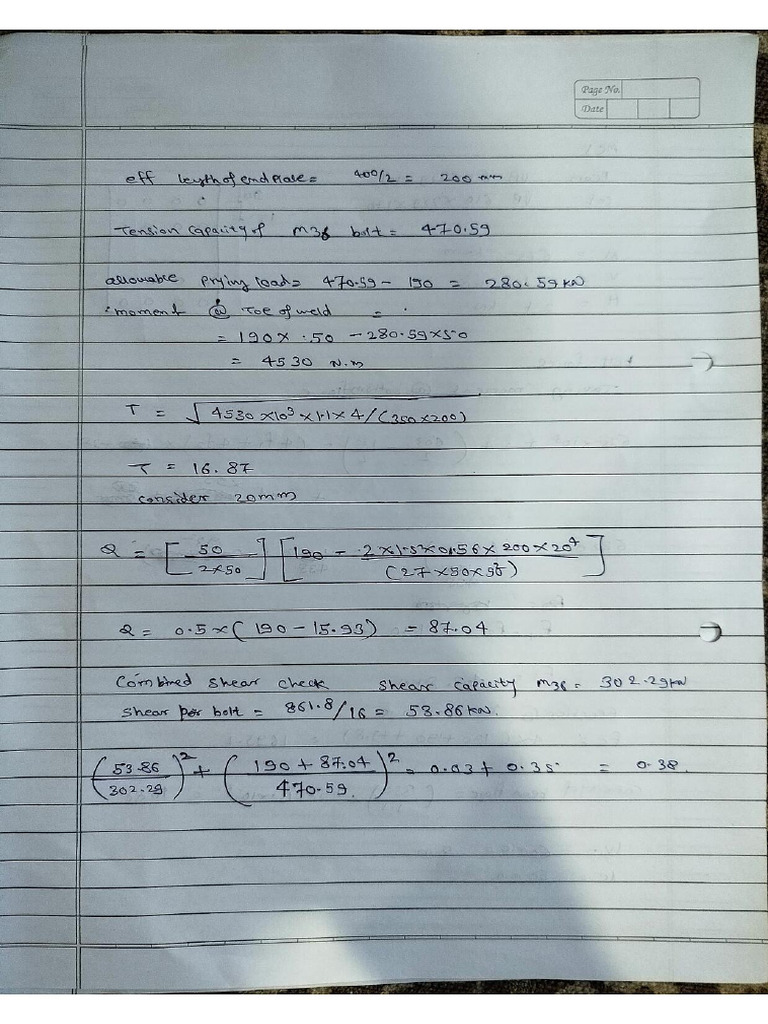 Page No.
Date
eff length of end plate = 400/2 = 200 mm
Tension capacity of M36 bolt = 470.59
allowable prying load = 470.59 - 190 = 280.59 KN
moment @ Toe of weld =
= 190 x .50 - 280.59 x 50
= 4530 N.m
T = √4530 x10³ x 1.1 x 4 / (350 x 200)
T = 16.87
consider 20mm
Q = [50 / 2x50] [190 - 2 x 1.5 x 0.56 x 200 x 20⁴ / (27 x 50 x 50²)]
Q = 0.5 x (190 - 15.93) = 87.04
Combined shear check shear capacity M36 = 302.29 KN
shear per bolt = 861.8/16 = 53.86 KN.
(53.86 / 302.29)² + (190 + 87.04 / 470.59)² = 0.03 + 0.35 = 0.38.